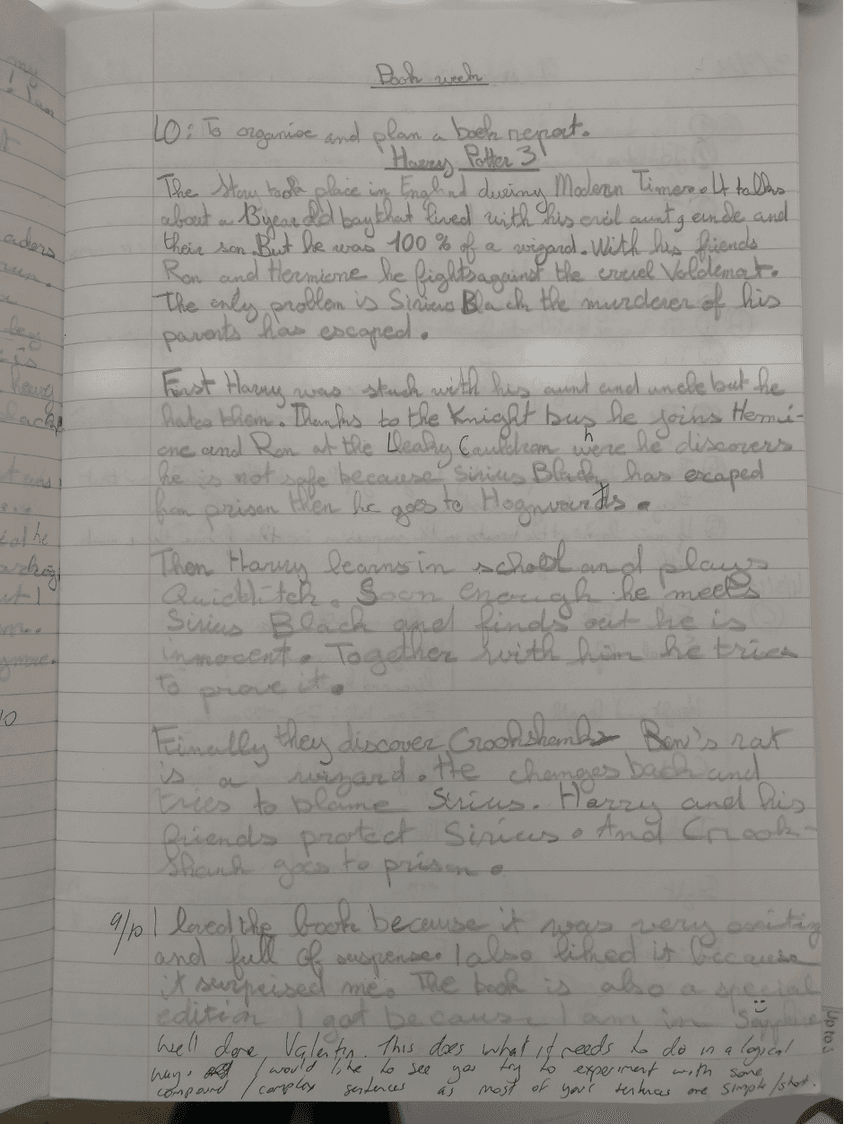 Book week
LO: To organise and plan a book report.
Harry Potter 3
The Story took place in England during Modern Times. It talks
about a 13 year old boy that lived with his evil aunt, and
their son. But he was 100 % of a wizard. With his friends
Ron and Hermione he fights against the cruel Voldemort.
The only problem is Sirius Black the murderer of his
parents has escaped.
First Harry was stuck with his aunt and uncle but he
hates them. Thanks to the Knight bus he joins Hermi-
one and Ron at the Leaky Cauldron where he discovers
he is not safe because Sirius Black has escaped
from prison then he goes to Hogwarts.
Then Harry learns in school and plays
Quidditch. Soon enough he meets
Sirius Black and finds out he is
innocent. Together with him he tries
to prove it.
Finally they discover Crookshanks Ron's rat
is a wizard. He changes back and
tries to blame Sirius. Harry and his
friends protect Sirius. And Crook-
shank goes to prison.
9/10 I loved the book because it was very exciting
and full of suspense. I also liked it because
it surpeised me. The book is also a special
edition I got because I am in Sapphire
Well done, Valentin. This does what it needs to do in a logical
way. I would like to see you try to experiment with some
compound / complex sentences as most of your sentences are simple/short.